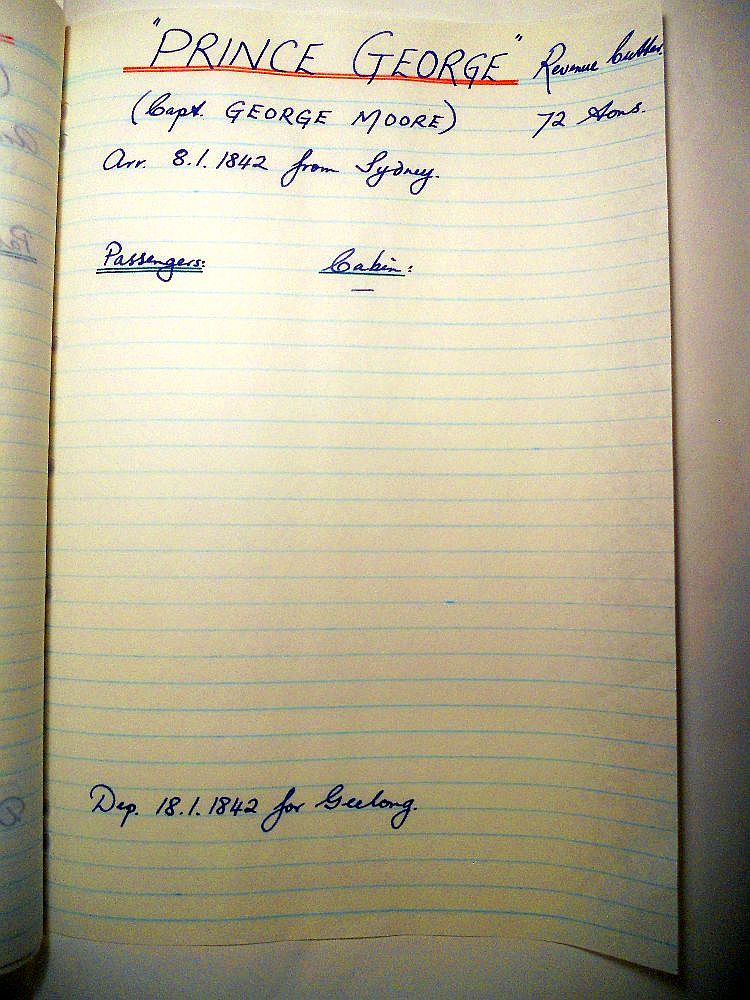 "PRINCE GEORGE" Revenue Cutter.
(Capt. GEORGE MOORE) 72 tons.
Arr. 8.1.1842 from Sydney.
Passengers: Cabin:
—
Dep. 18.1.1842 for Geelong.